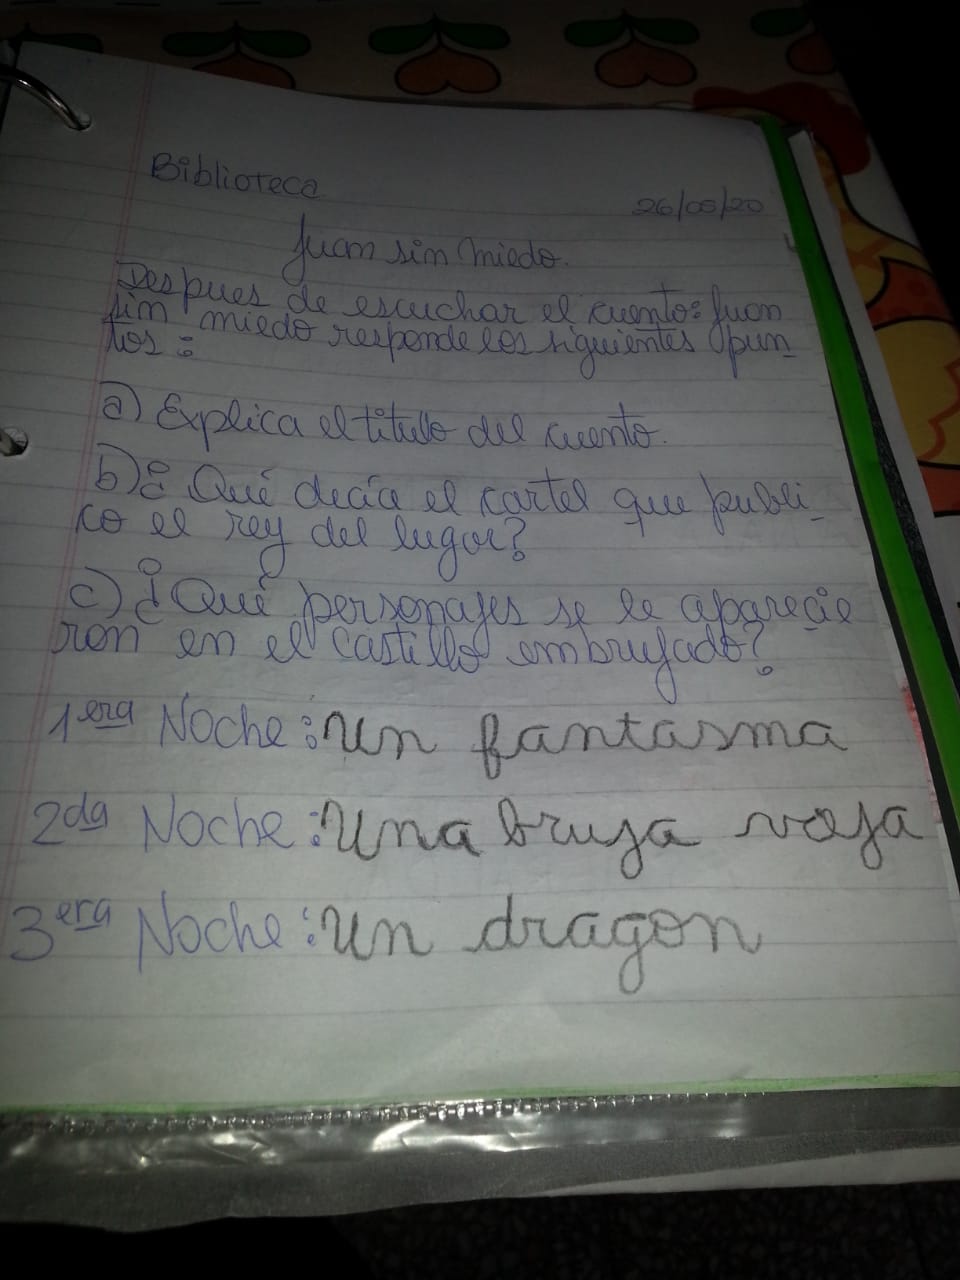 Biblioteca
26/05/20
Juan sin miedo.
Despues de escuchar el cuento: Juan
sin miedo responde los siguientes pun_
tos:
a) Explica el titulo del cuento.
b) ¿Qué decía el cartel que publi_
co el rey del lugar?
c) ¿Qué personajes se le aparecie
ron en el castillo embrujado?
1era Noche: Un fantasma
2da Noche: Una bruja roja
3era Noche: Un dragon